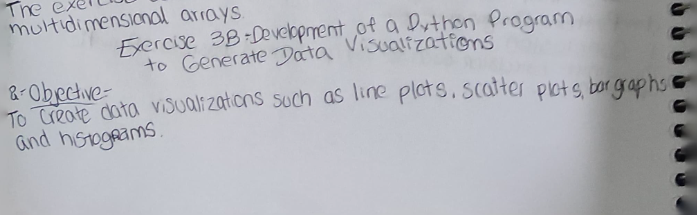 The exerc
multidimensional arrays.
Exercise 3B-Development of a Python Program
to Generate Data Visualizations
a-Objective-
To Create data visualizations such as line plots, scatter plots, bar graphs
and histograms.